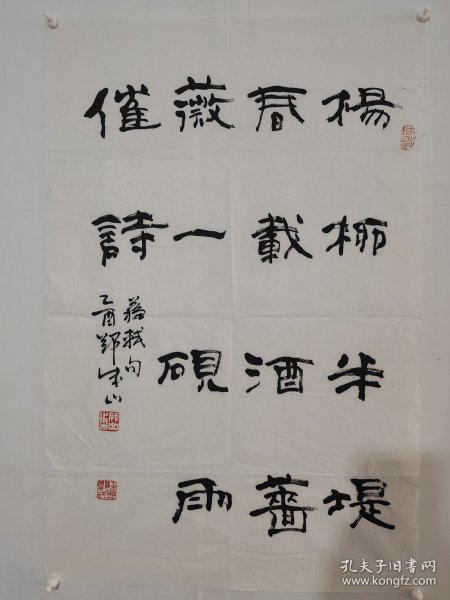 楊柳半堤
春載酒薔
薇一硯雨
催詩
蘇軾句
乙酉鄭成山
孔夫子旧书网
www.kongfz.com